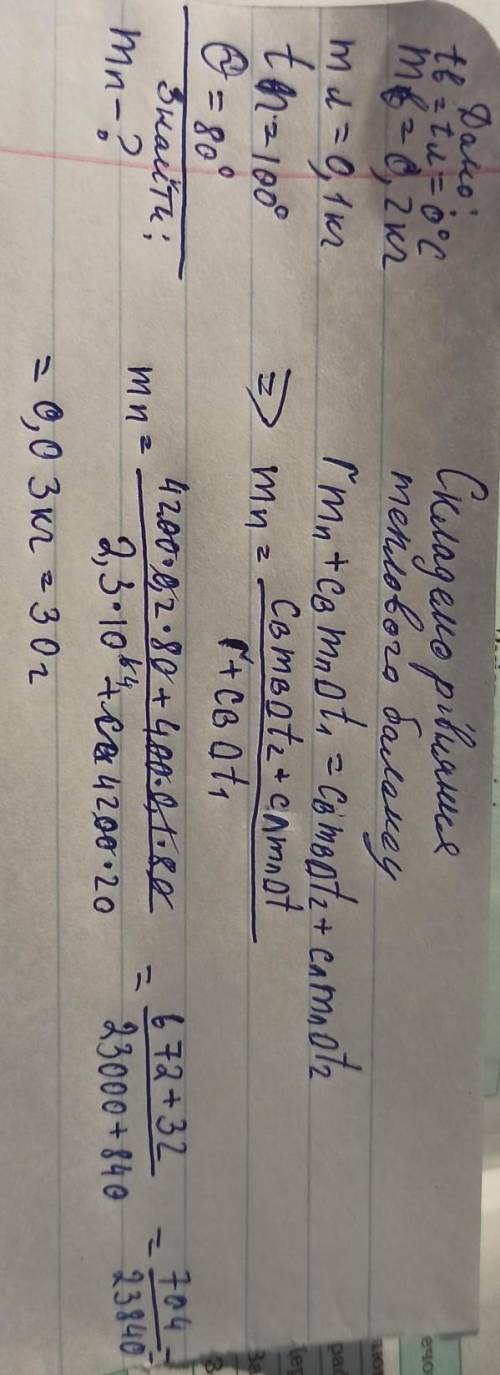 Дано:
tв = tл = 0°C
mв = 0,2 кг
mл = 0,1 кг
tп = 100°
Θ = 80°
Знайти:
mп - ?
Складемо рівняння
теплового балансу
rmп + cв mп Δt₁ = cв mв Δt₂ + cл mл Δt₂
=> mп = cв mв Δt₂ + cл mл Δt / r + cв Δt₁
mп = 4200·0,2·80 + 400·0,1·80 / 2,3·10⁴ + 4200·20 = 672 + 32 / 23000 + 840 = 704 / 23840 =
= 0,03 кг = 30 г